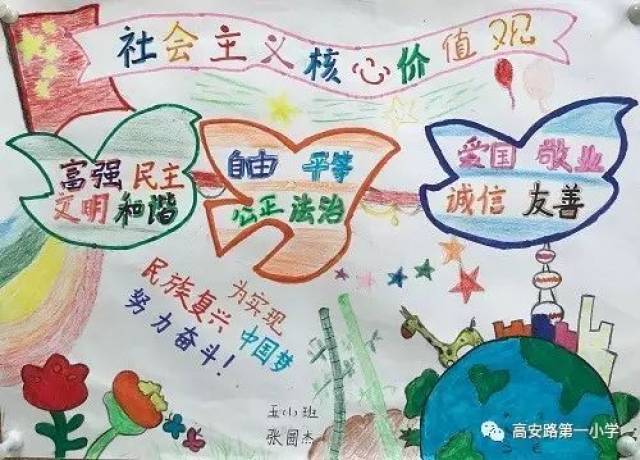 社会主义核心价值观
富强 民主
文明 和谐
自由 平等
公正 法治
爱国 敬业
诚信 友善
为实现
民族复兴 中国梦
努力奋斗!
五小班
张圄杰
高安路第一小学